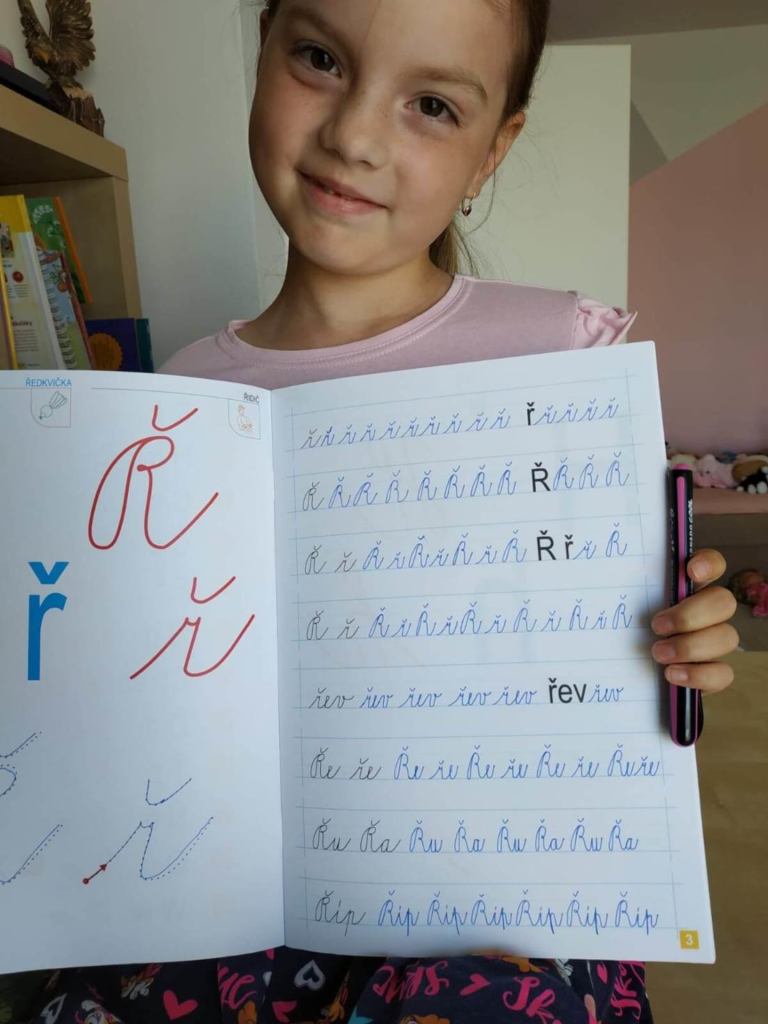 ŘEDKVIČKA
ŘIDIČ
Ř
ř
ř
ř
ř ř ř ř ř ř ř ř ř ř ř ř ř ř ř ř
Ř Ř Ř Ř Ř Ř Ř Ř Ř Ř Ř Ř
Ř ř Ř ř Ř ř Ř ř Ř Ř ř ř Ř
Ř ř Ř ř Ř ř Ř ř Ř ř Ř ř Ř
řev řev řev řev řev řev řev
Ře ře Ře ře Ře ře Ře ře Ře ře
Řu Řa Řu Řa Řu Řa Řu Řa
Říp Říp Říp Říp Říp Říp Říp
3